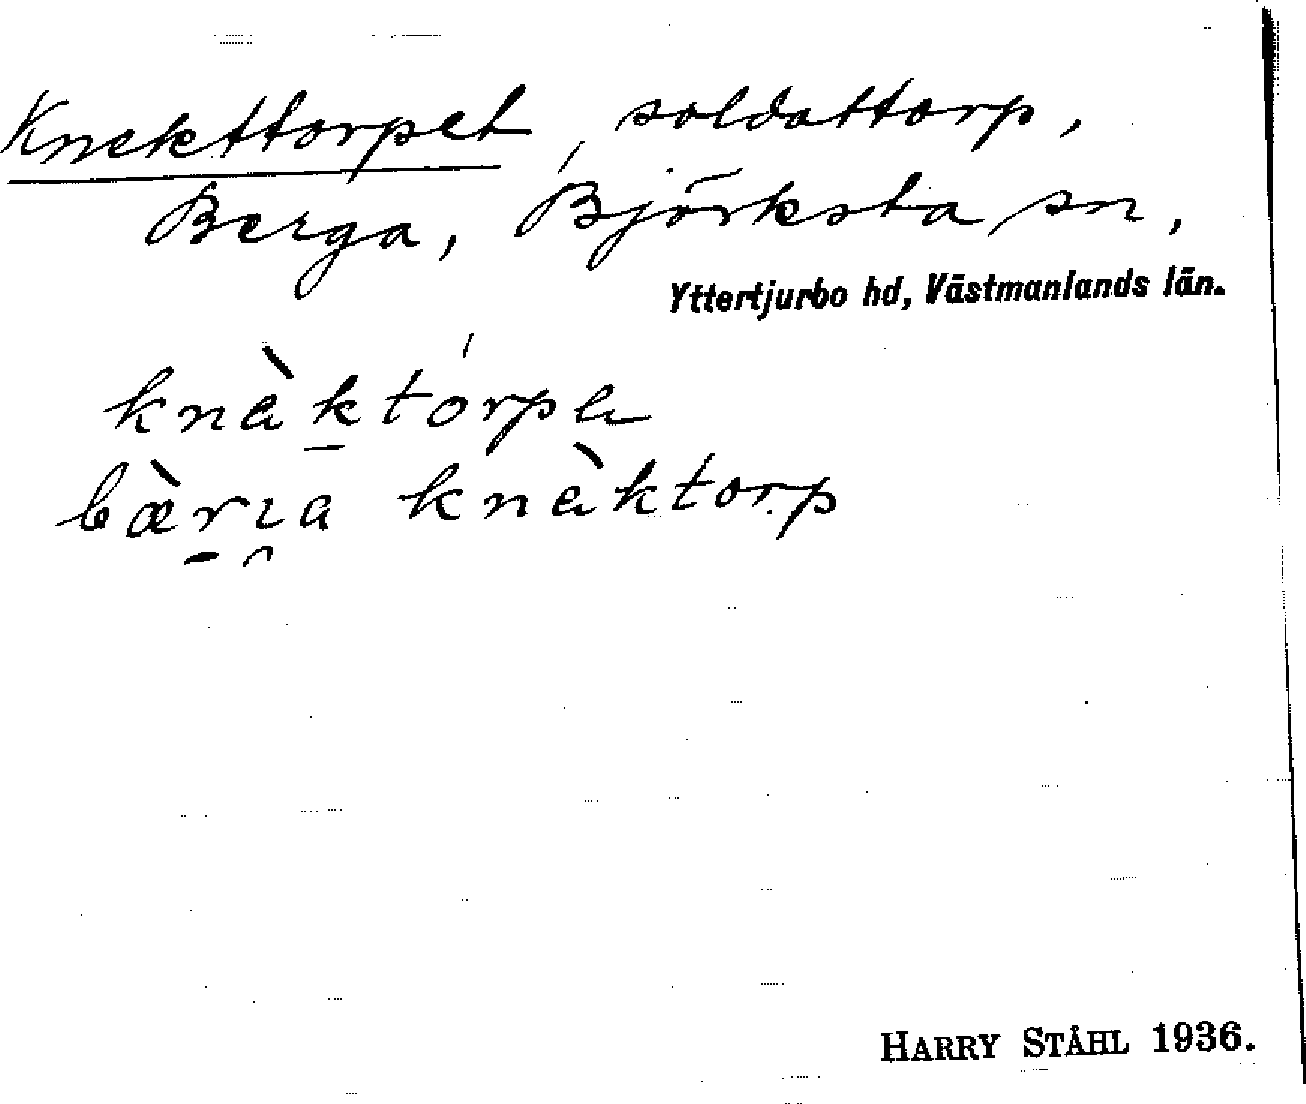 Knekttorpet, soldattorp,
Berga, Björksta sn,
Yttertjurbo hd, Västmanlands län.
knὲktórpɘ
bæ̀rɪa knὲktorp
HARRY STÅHL 1936.